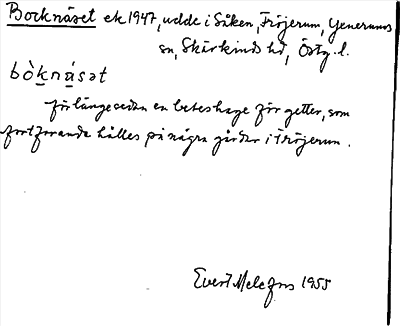 Bocknäset ek 1947, udde i Såken, Fröjerum, Yxnerums
sn, Skärkinds hd, Östg. l.
bòknásət
för länge sedan en beteshage för getter, som
fortfarande hålles på några gårdar i Fröjerum.
Evert Melefors 1955